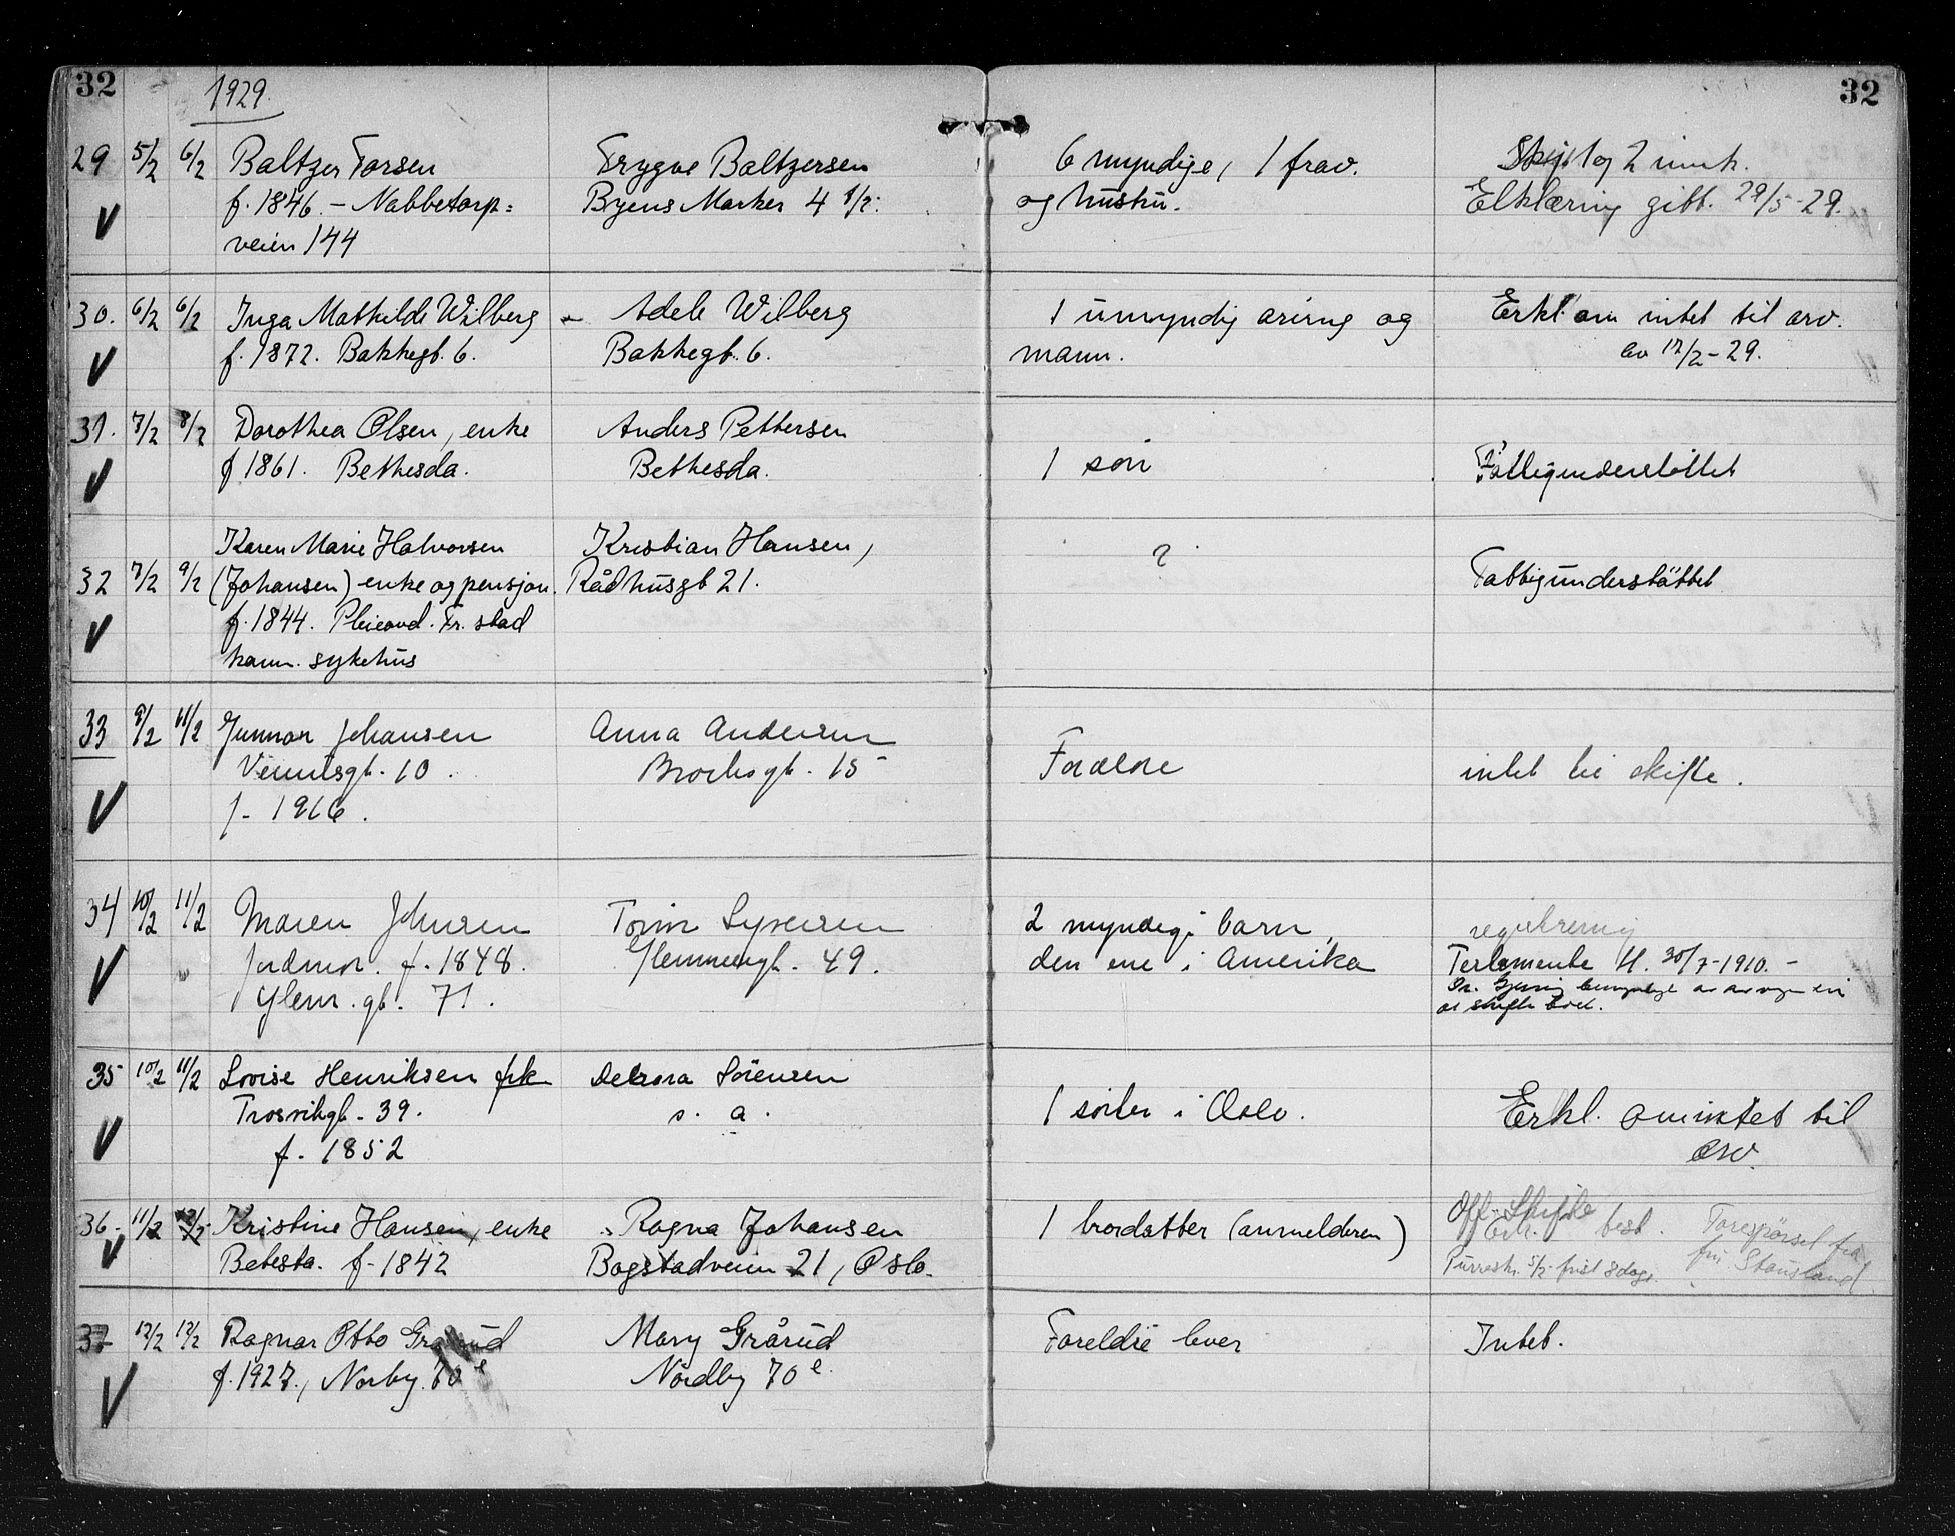 32
1929.
32
29 5/2 6/2 Baltzer Torsen
f. 1846. - Nabbetorp=
veien 144
Trygve Baltzersen
Byens Marker 4 1/2.
6 myndige, 1 frav.
og hustru.
og 2 umk.
Elklæring gitt. 29/5-29.
30. 6/2 6/2 Inga Mathilde Wilberg
f. 1872. Bakkegt. 6.
Adele Wilberg
Bakkegt. 6.
1 umyndig arving og
mann.
Erkl. om intet til arv.
av 12/2-29.
31. 7/2 8/2 Dorothea Olsen, enke
f 1861. Bethesda.
Anders Pettersen
Bethesda.
1 sön
Fattigunderstöttet
32 7/2 9/2 Karen Marie Halvorsen
(Johansen) enke og pensjon.
f. 1844. Pleieavd. Fr. stad
kom. sykehus
Kristian Hansen,
Rådhusgt 21.
?
Fattigunderstöttet
33 9/2 11/2 Gunnar Johansen
gt. 10.
f. 1916.
Anna Andersen
Brochsgt. 15
Forældre
intet til skifte.
34 10/2 11/2 Maren Johnsen
Jordmor. f. 1848.
Glem. gt. 71.
Syversen
Glemmengt. 49.
2 myndige barn,
den ene i Amerika
registrering
Testamente 30/7-1910. -
35 10/2 11/2 Lovise Henriksen frk
Trosvikgt. 39.
f. 1852
Sörensen
s. a.
1 söster i Oslo.
Erkl. om intet til
arv.
36. 11/2 Kristine Hansen, enke
Betesta. f. 1842
Ragna Johansen
Bogstadveien 21, Oslo.
1 brordatter (anmelderen)
Off. Skifte
Erkl. best. Forespörsel fra
fru Stousland
Purresk. 5/5 frist 8 dage.
37 12/2 12/2 Ragnar Otto Grårud
f. 1927., Norby. 70 e
Mary Grårud
Nordby 70 e.
Foreldre lever
Intet.